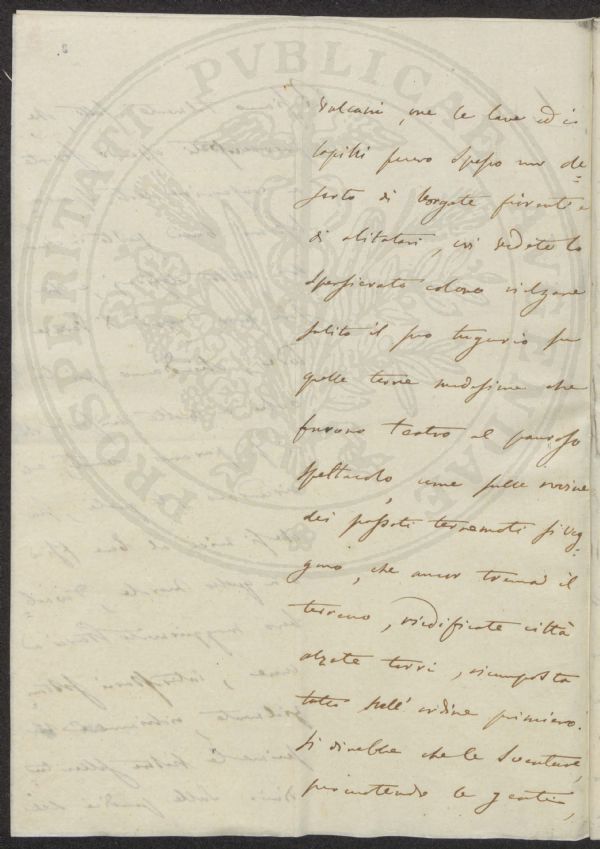 PROSPERITATI PVBLICAE AVGENDAE
Vulcani, ove le lave ed i
lapilli fecero spesso un de=
serto di borgate fiorenti e
di abitatori, ivi vedete lo
spensierato colono rialzare
subito il suo tugurio su
quelle terre medesime che
furono teatro al pauroso
spettacolo, come sulle rovine
dei passati terremoti si veg=
gono, che ancor trema il
terreno, riedificate città
alzate torri, ricomposto
tutto nell'ordine primiero.
Si direbbe che le sventure,
percuotendo le genti,